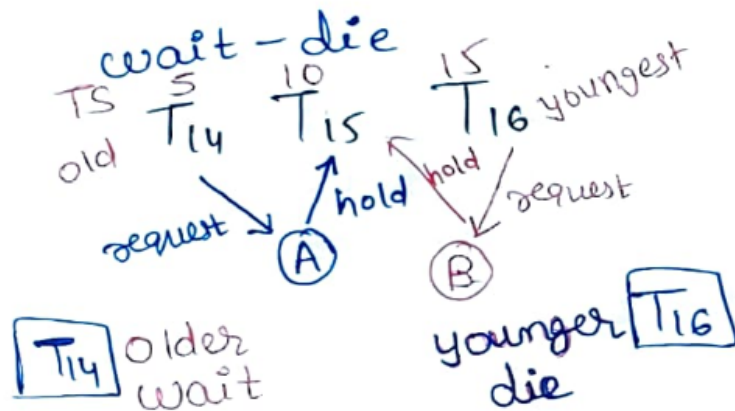 wait - die
TS 5 10 15
old T14 T15 T16 youngest
request hold hold request
A B
T14 older wait
younger T16 die